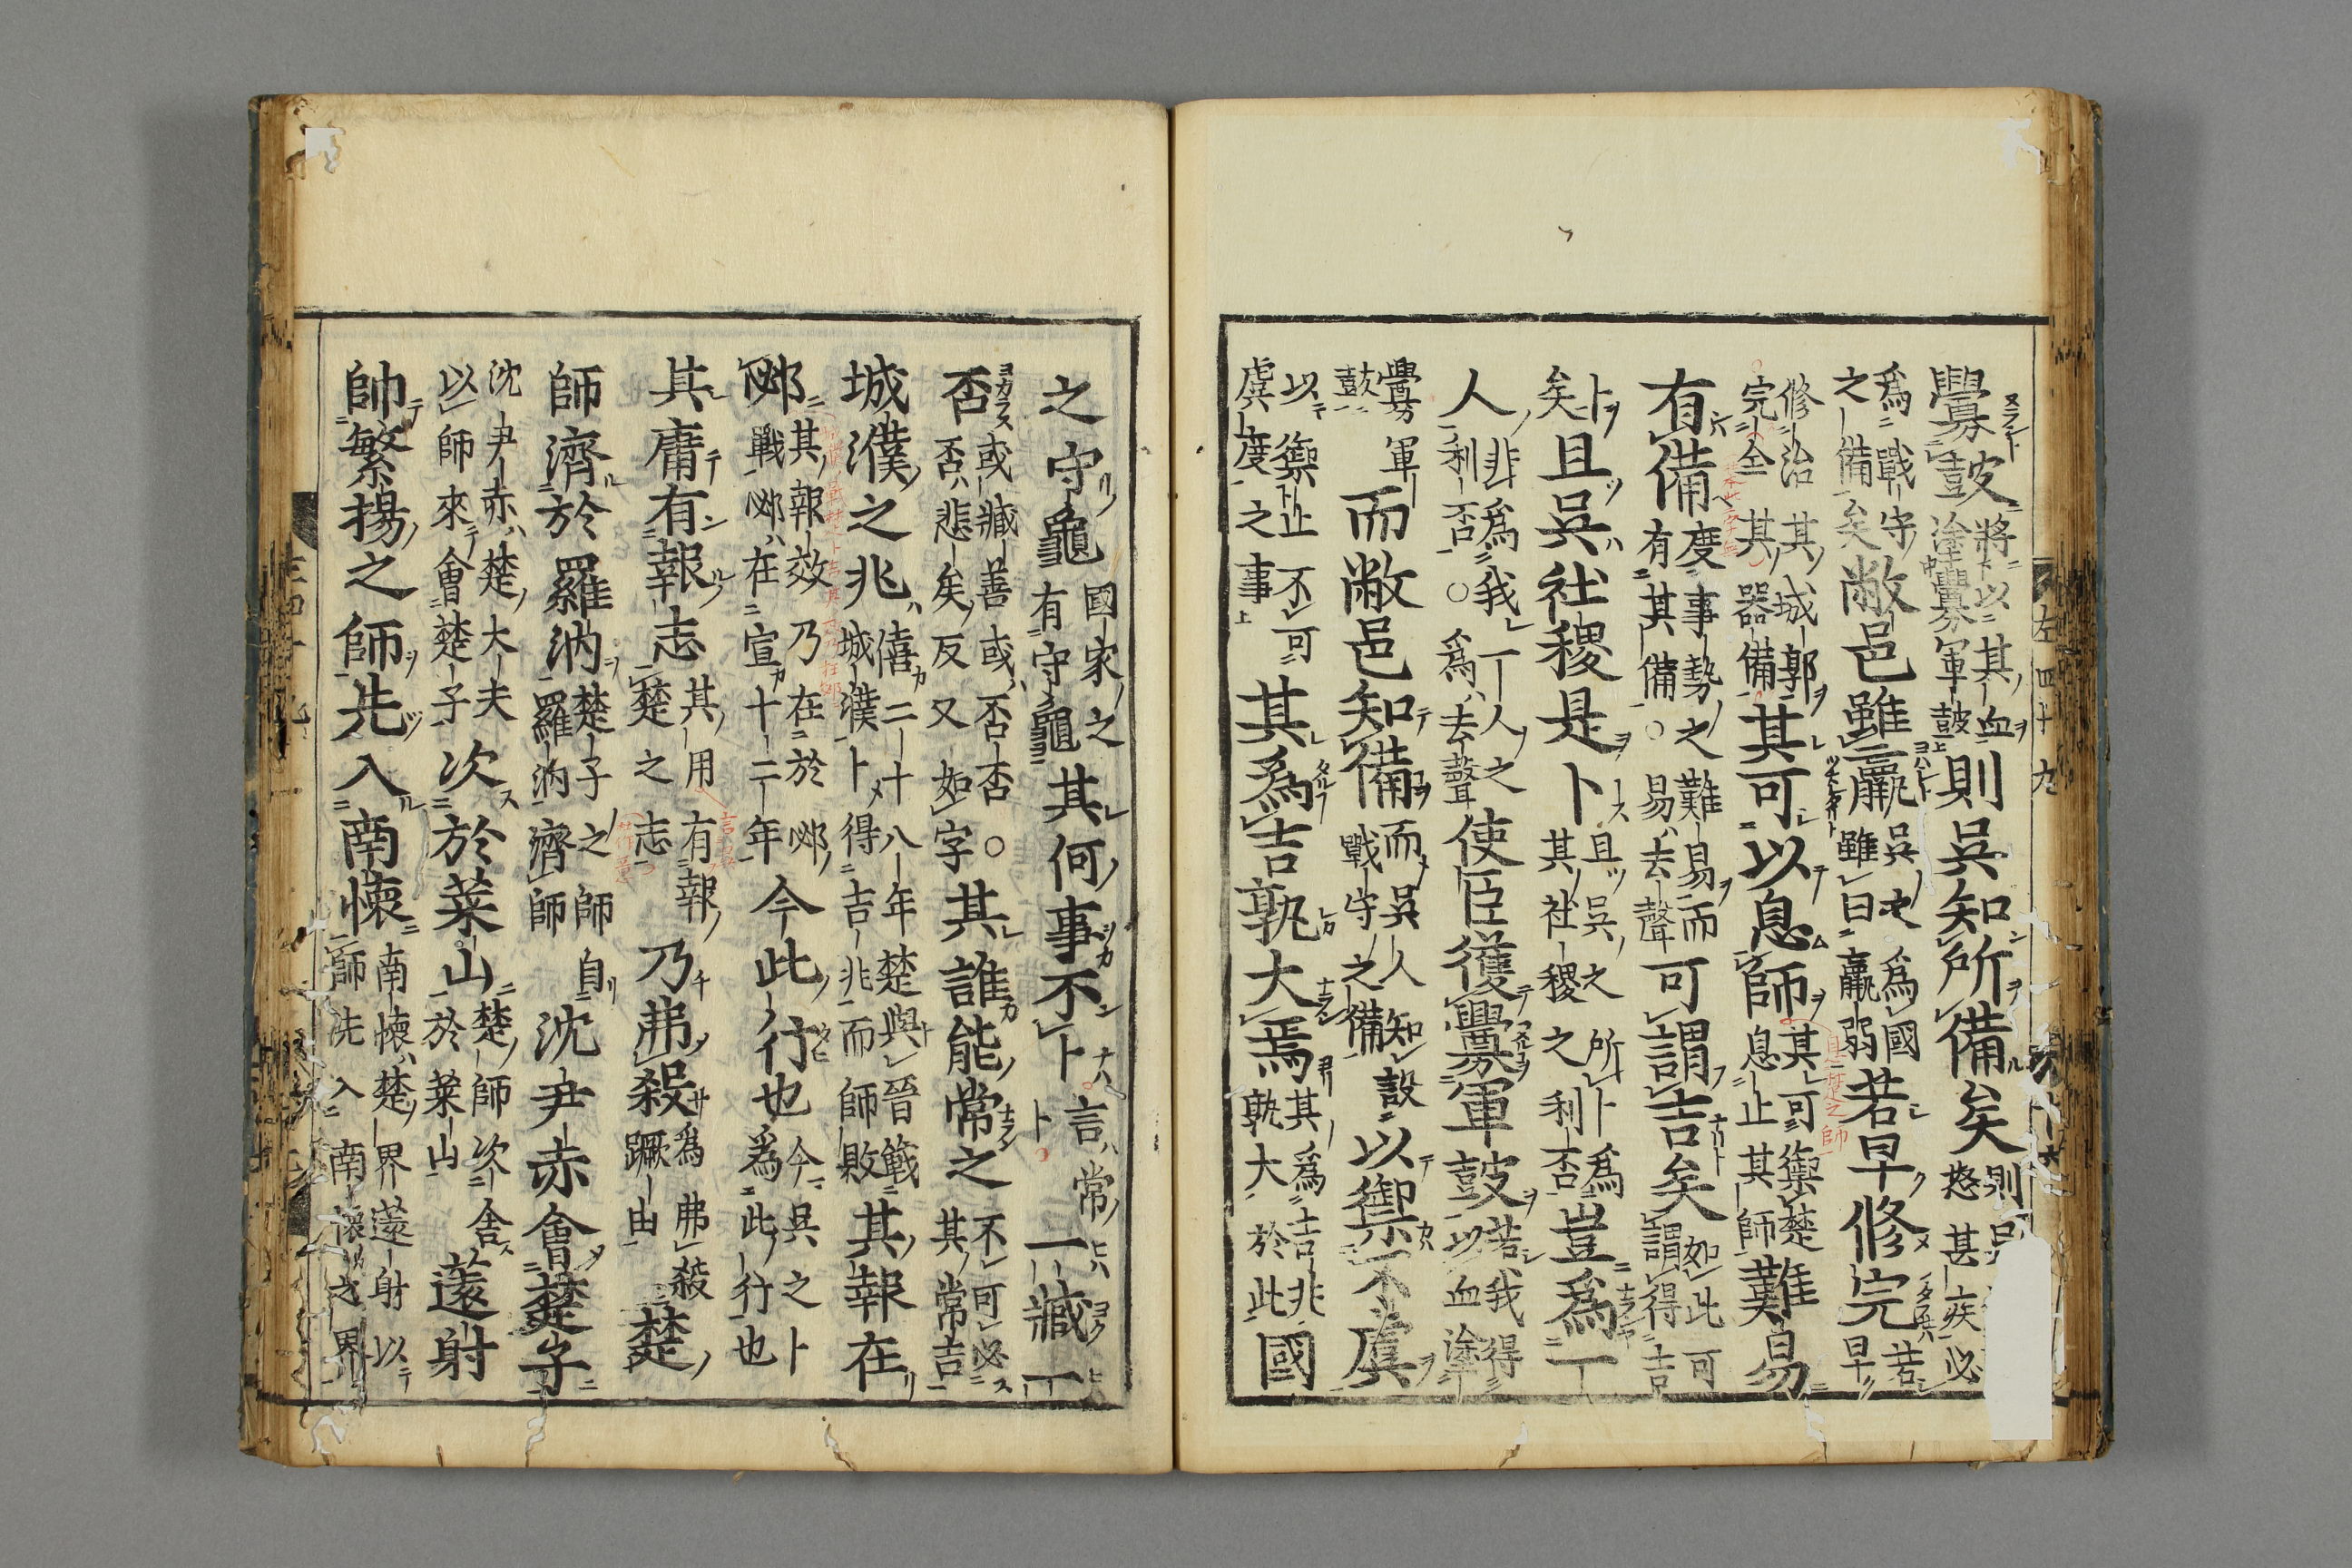 釁鼓將以其血塗釁軍鼓則吳知所備矣
爲戰守之備矣敝邑雖羸吳也爲國雖曰羸弱若早修完若早
修治其城郭完全其器備其可以息師其可禦楚息止其師難易
有備度事勢之難易而有其備○易去聲可謂吉矣如此可謂得吉
卜矣且吳社稷是卜且吳之所卜爲其社稷之利否豈爲一
人非爲我一人之利否○爲去聲使臣獲釁軍鼓若我得以血塗
釁軍鼓而敝邑知備而吳人知設戰守之備以禦不虞
以禦止不可虞度之事其爲吉孰大焉其爲吉兆孰大於此國
之守龜國家之有守龜其何事不卜言常卜一臧一
否或臧善或否否○否悲矣反又如字其誰能常之不可必其常吉
城濮之兆僖二十八年楚與晉戰城濮卜得吉兆而師敗其報在
邲其報效乃在於邲戰邲在宣十二年今此行也今吳之卜爲此行也
其庸有報志其用有報楚之志乃弗殺爲弗殺蹶由楚
師濟於羅汭楚子之師自羅汭濟師沈尹赤會楚子
沈尹赤楚大夫以師來會楚子次於萊山楚師次舍於萊山薳射
帥繁揚之師先入南懷南懷楚界薳射以師先入南懷之界